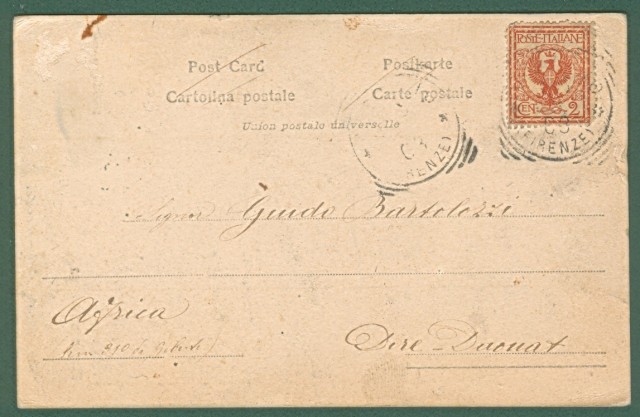 POSTE ITALIANE
CENT. 2
Post Card
Postkarte
Cartolina postale
Carte postale
Union postale universelle
03
(FIRENZE)
03
(FIRENZE)
Signor Guido Bartolozzi
Africa
Dire-Daouat